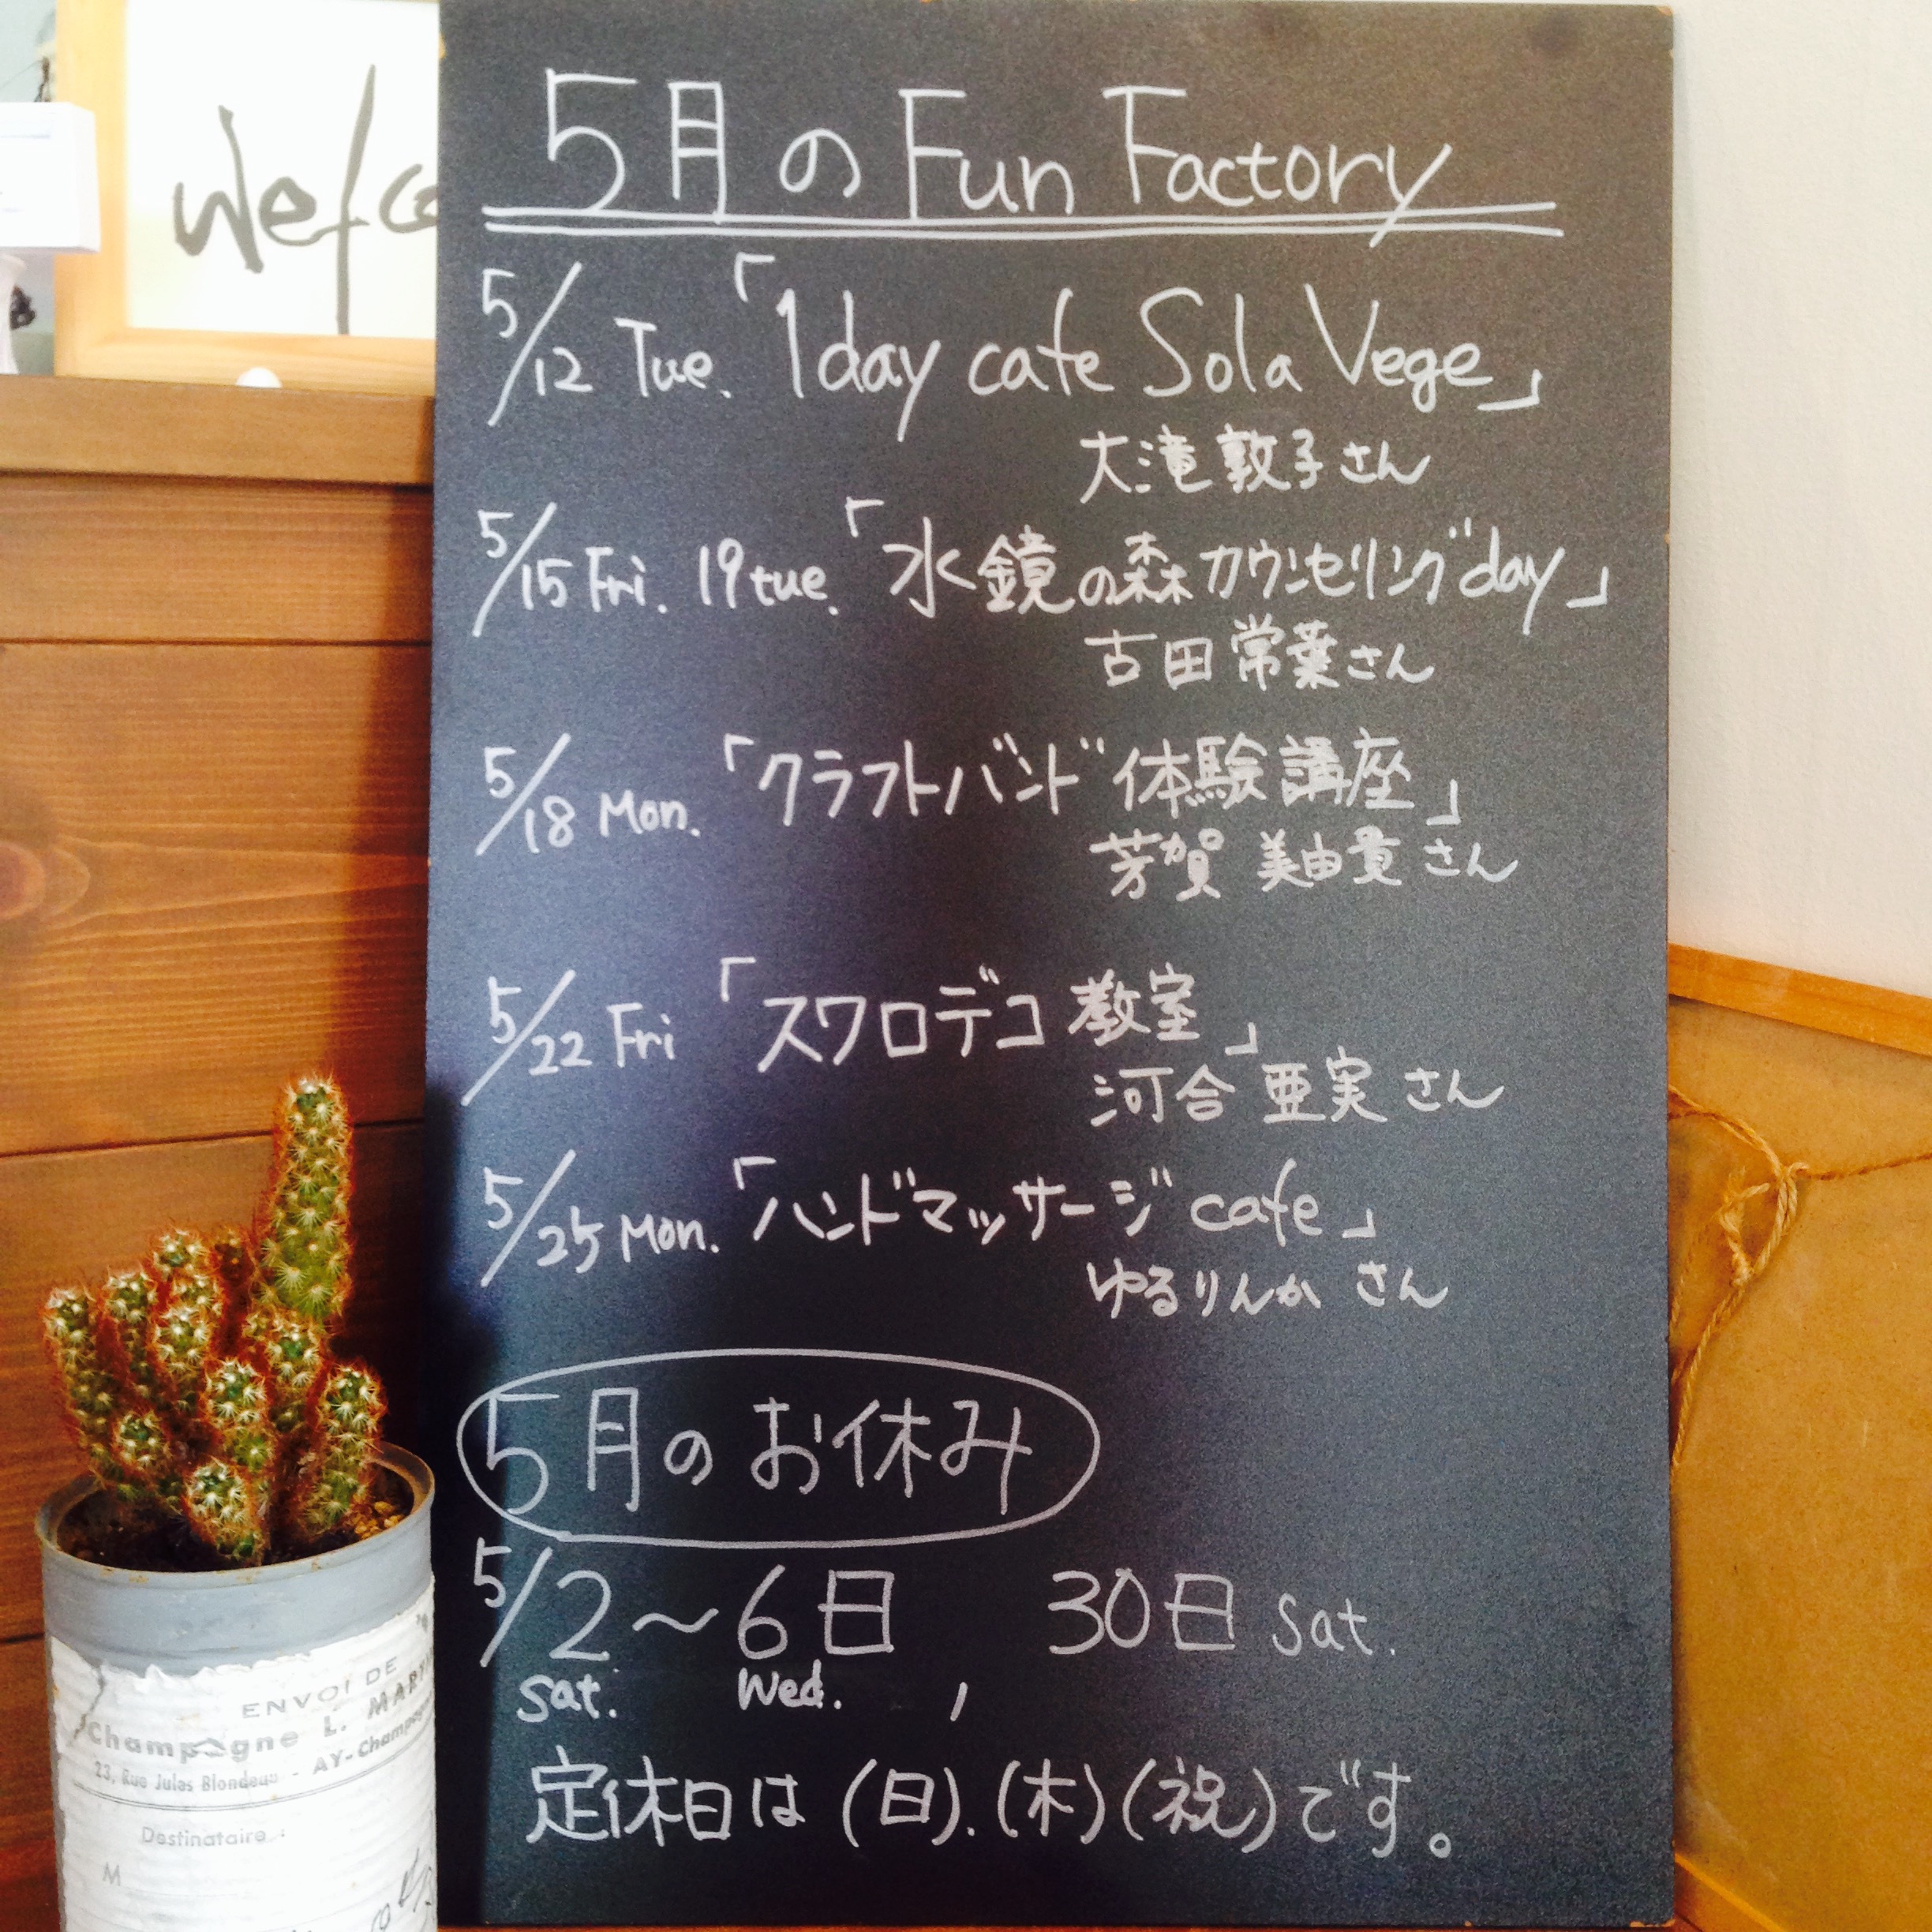 welco
5月のFun Factory
5/12 Tue.「1day cafe Sola Vege」
大滝敦子さん
5/15 Fri. 19 tue.「水鏡の森カウンセリングday」
古田常葉さん
5/18 Mon.「クラフトバンド体験講座」
芳賀 美由貴さん
5/22 Fri「スワロデコ教室」
河合 亜実さん
5/25 Mon.「ハンドマッサージcafe」
ゆるりんかさん
5月のお休み
5/2〜6日, 30日 sat.
sat. Wed.
定休日は(日).(木)(祝)です。
ENVOI DE
Champagne L.
23, Rue Jules Blondeau - AY-Champagne
Destinataire :
M